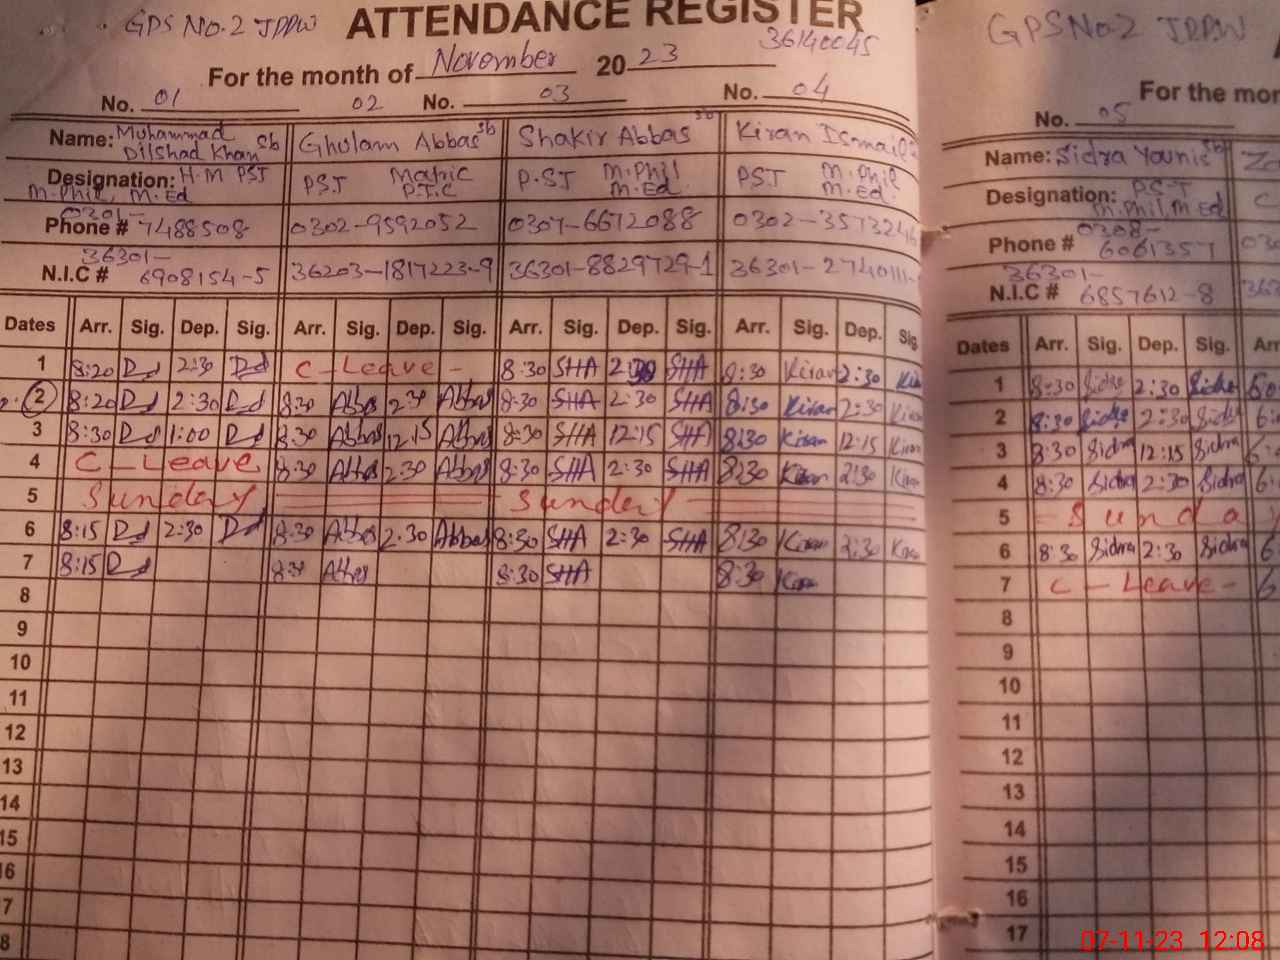 GPS No.2 JDDW ATTENDANCE REGISTER
36140045
For the month of November 2023
No. 01 02 No. 03 No. 04
Name: Muhammad Dilshad Khan Sb Ghulam Abbas Sb Shakir Abbas Sb Kiran Ismail
Designation: H.M PST M.Phil, M.Ed PST Matric P.T.C P.ST M.Phil M.Ed. PST M.Phil M.Ed.
Phone # 0301-7488508 0302-9592052 0307-6672088 0302-3573246
N.I.C # 36301-6908154-5 36203-1817223-9 36301-8829729-1 36301-2740111-
Dates Arr. Sig. Dep. Sig. Arr. Sig. Dep. Sig. Arr. Sig. Dep. Sig. Arr. Sig. Dep. Sig.
1 8:20 Dd 2:30 Dd C-Leave- 8:30 SHA 2:30 SHA 8:30 Kiran 2:30
2 8:20 Dd 2:30 Dd 8:30 Abbas 2:30 Abbas 8:30 SHA 2:30 SHA 8:30 Kiran 2:30 Kiran
3 8:30 Dd 1:00 Dd 8:30 Abbas 12:15 Abbas 8:30 SHA 12:15 SHA 8:30 Kiran 12:15 Kiran
4 C-Leave 8:30 Abbas 2:30 Abbas 8:30 SHA 2:30 SHA 8:30 Kiran 2:30 Kiran
5 Sunday Sunday
6 8:15 Dd 2:30 Dd 8:30 Abbas 2:30 Abbas 8:30 SHA 2:30 SHA 8:30 Kiran 2:30 Kiran
7 8:15 Dd 8:30 Abbas 8:30 SHA 8:30 Kiran
8
9
10
11
12
13
14
15
16
7
8
GPS No.2 JDDW
For the mon
No. 05
Name: Sidra Younis Sb
Designation: P.S.T M.Phil, M.Ed
Phone # 0308-6061357
N.I.C # 36301-6857612-8
Dates Arr. Sig. Dep. Sig. Arr
1 8:30 Sidra 2:30 Sidra
2 8:30 Sidra 2:30 Sidra
3 8:30 Sidra 12:15 Sidra
4 8:30 Sidra 2:30 Sidra
5 Sunday
6 8:30 Sidra 2:30 Sidra
7 C-Leave-
8
9
10
11
12
13
14
15
16
17
07-11-23 12:08